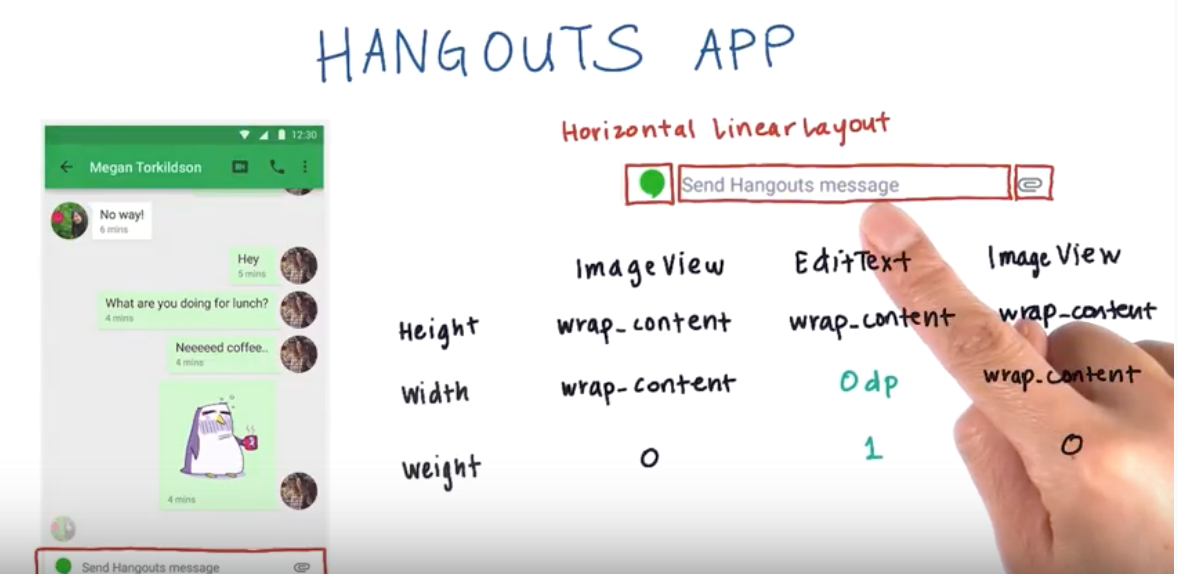 HANGOUTS APP
12:30
Megan Torkildson
No way!
6 mins
Hey
5 mins
What are you doing for lunch?
4 mins
Neeeeed coffee..
4 mins
4 mins
Send Hangouts message
Horizontal Linear Layout
Send Hangouts message
ImageView EditText ImageView
Height wrap_content wrap_content wrap_content
Width wrap_content 0dp wrap_content
weight 0 1 0